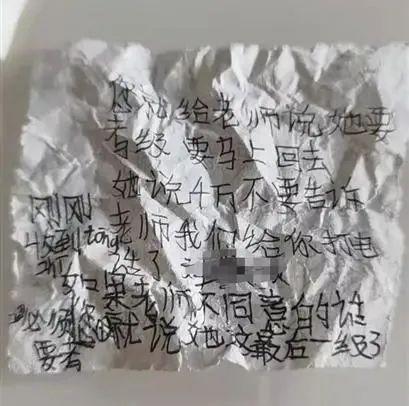 你就给老师说她要
考级 要马上回去
她说千万不要告诉
老师我们给你打电
话了
如果老师不同意的话
你就说她这最后一级了
刚刚
收到tong
必须
要考